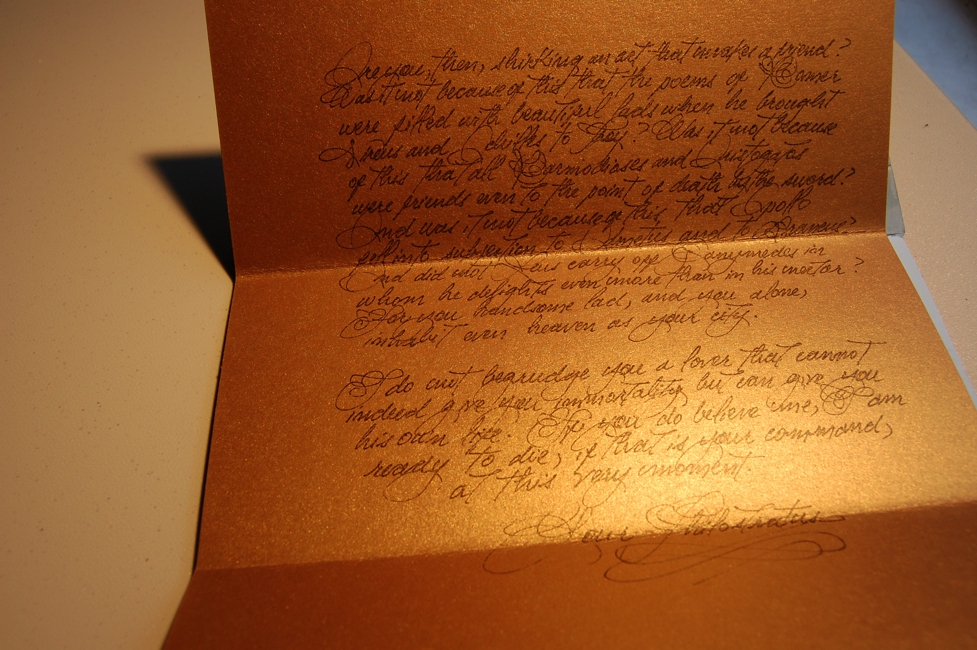 Are you, then, shirking an act that makes a friend?
Was it not because of this that the poems of Homer
were filled with beautiful lads when he brought
Nireus and Achilles to Troy? Was it not because
of this that all Harmodiuses and Aristogitos
were friends even to the point of death by the sword?
And was it not because of this that Apollo
fell into subjection to Admetus and to Branchus?
And did not Zeus carry off Ganymedes in
whom he delights even more than in his nectar?
For you handsome lad, and you alone,
inhabit even heaven as your city.
I do not begrudge you a lover that cannot
indeed give you immortality but can give you
his own life. If you do believe me, I am
ready to die, if that is your command,
at this very moment.
Your Philostratus